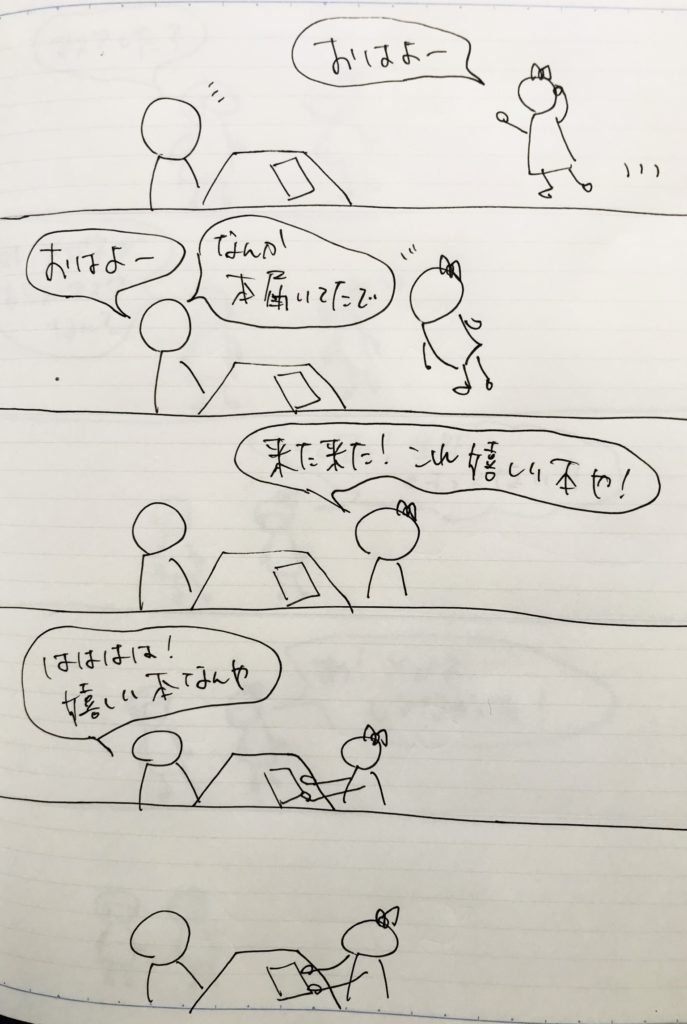 おはよー
おはよー
なんか
本届いてたで
来た来た！これ嬉しい本や！
はははは！
嬉しい本なんや